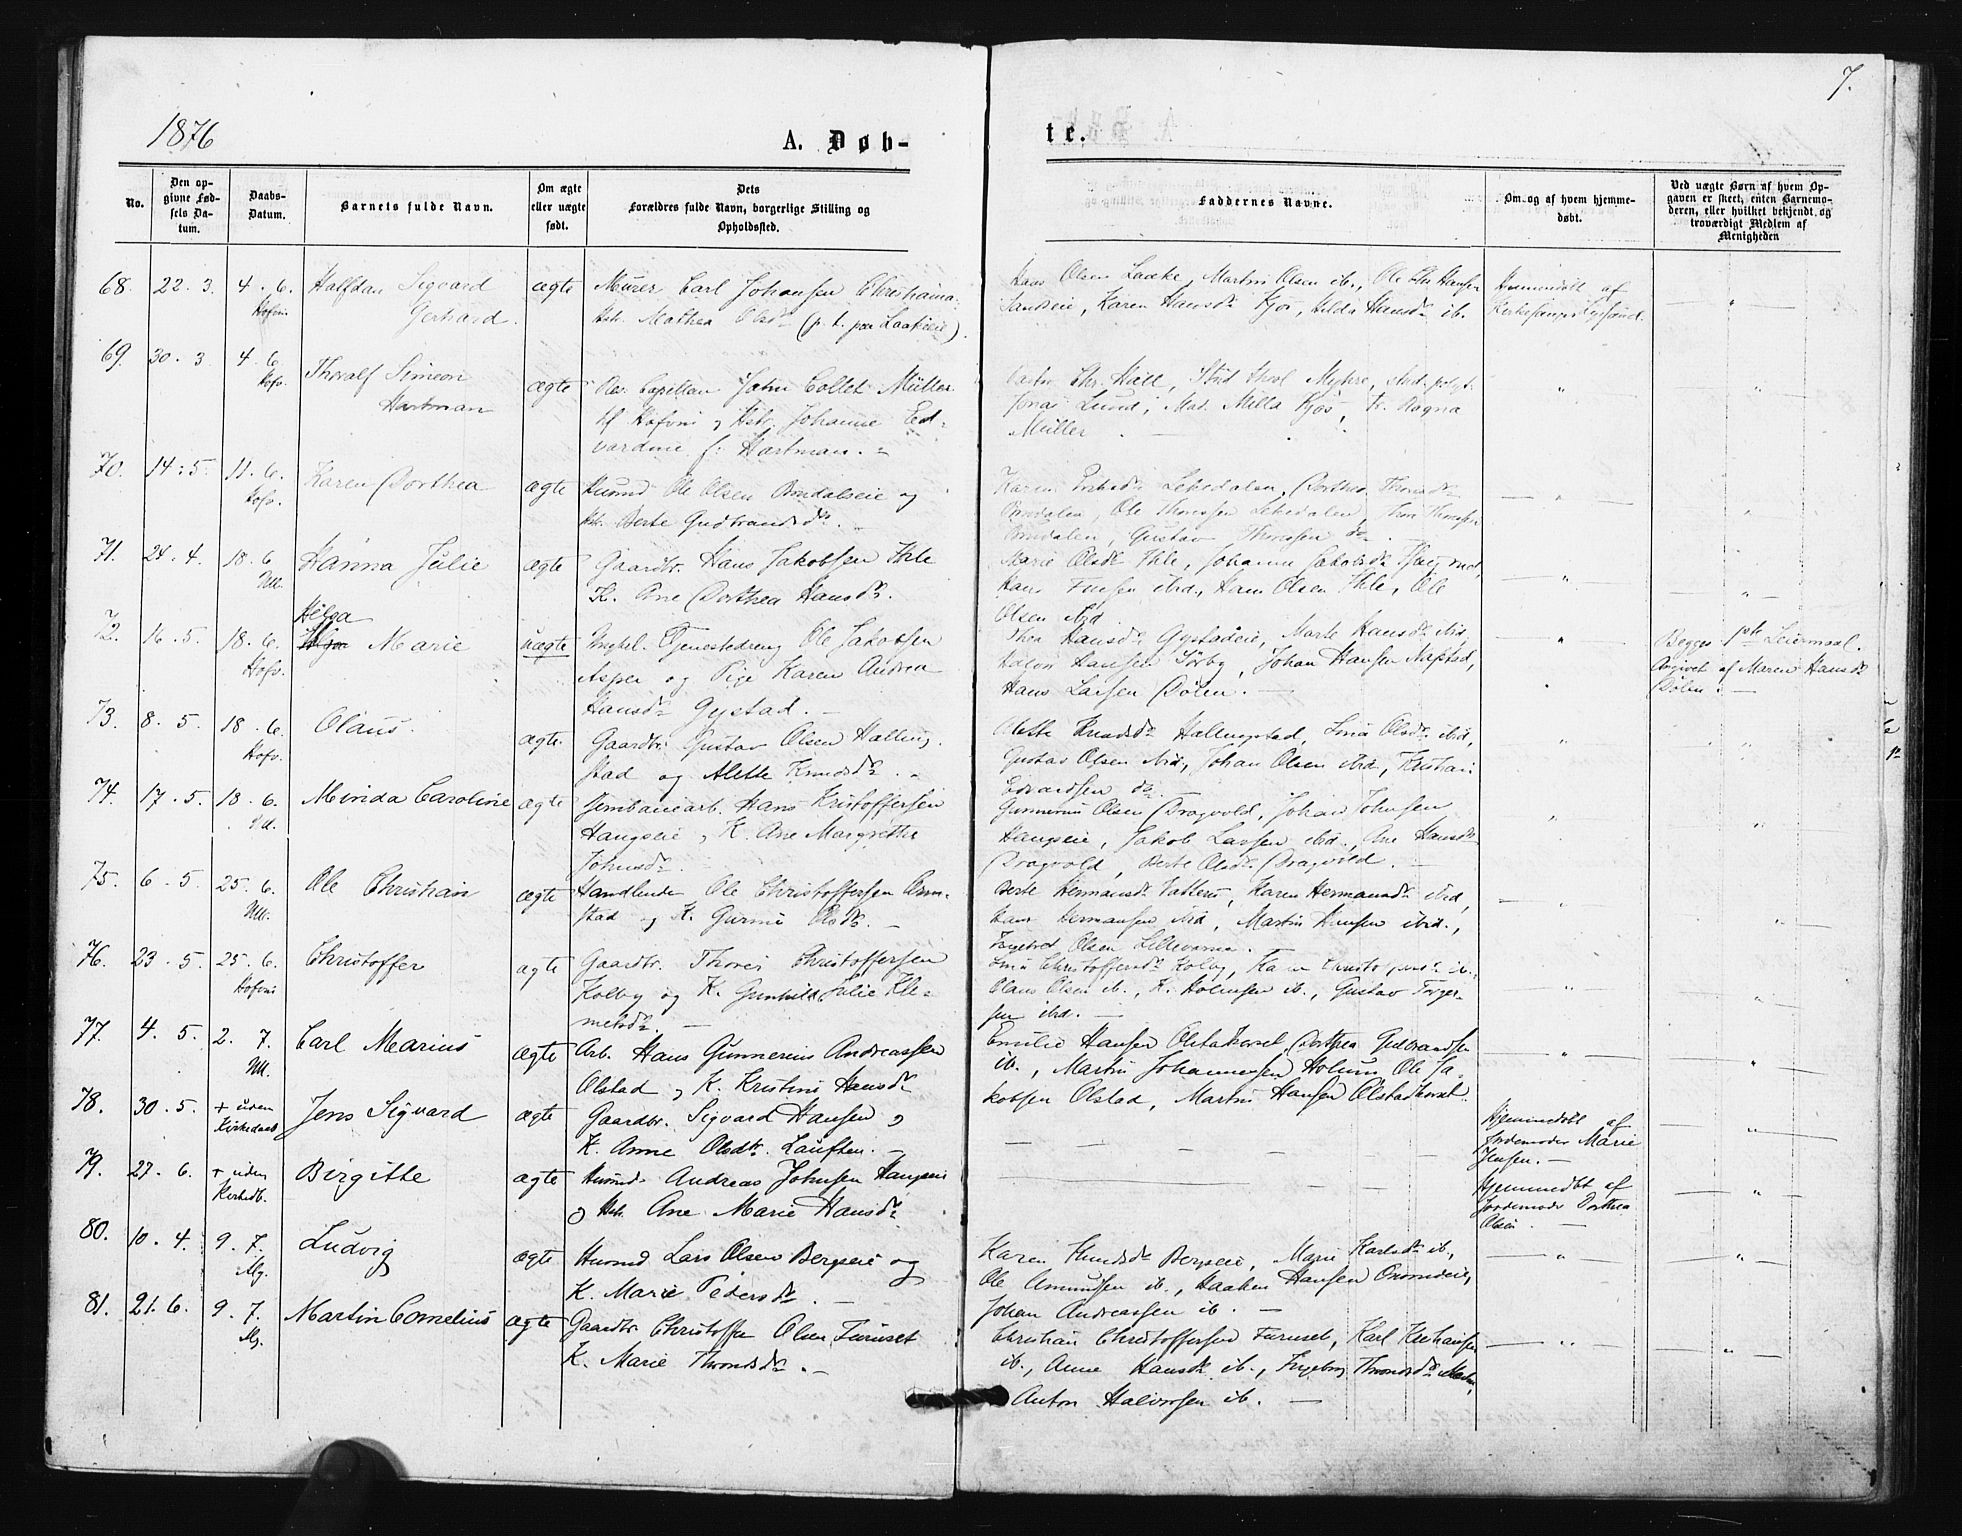 1876
7.
A. Døb-
te.
No.
Den opgivne Fødsels Datum.
Daabs-Datum.
Barnets fulde Navn.
Om ægte eller uægte født.
Dets Forældres fulde Navn, borgerlige Stilling og Opholdssted.
Faddernes Navne.
Om og af hvem hjemmedøbt.
Ved uægte Børn af hvem Opgaven er skeet, enten Barnemoderen, eller hvilket bekjendt og troværdigt Medlem af Menigheden
68. 22. 3. 4. 6. Halfdan Sigvard ægte Murer Carl Johansen Christiania
Hofvin Gerhard. Hstr. Mathea Olsdr (p. t. paa Laakeeie).
Hans Olsen Laake, Martin Olsen ib., Ole Hansen
Sandeeie, Karen Hansdr Kjos, Hilda Hansdr ib.
Hjemmedøbt af
Kirkesanger
69. 30. 3 4. 6. Thoralf Simeon ægte Res. Capellan John Collet Müller
Hofv. Hartman til Hofvin og Hstr. Johanne Ed-
vardine f. Hartman.
Chr. Hall, Stud. Myhre, stud. polyt.
Jonas Lund, Mad. Milla Kjos, Fr. Ragna
Müller
70. 14. 5. 11. 6. Karen Dorthea ægte Husmd Ole Olsen Brudalseie og
Hofv. Hstr. Berte Gudbrandsdr.
Karen Lekedalen, Dorthea Thoresdr
Ole Thoresen Lekedalen, Thoresen
Gustav Thoresen do.
71. 24. 4. 18. 6 Hanna Julie ægte Gaardbr. Hans Jakobsen Ihle
Ull. K. Ane Dorthea Hansdr.
Marie Olsdr Ihle, Johanne Jakobsdr
Hans ibid., Hans Olsen Ihle, Ole
Olsen ibid
72. 16. 5. 18. 6. Helga Marie uægte Ungkl. Tjenestedreng Ole Jakobsen
Hofv. Asper og Pige Karen Andrea
Hansdr Gystad.
Thea Hansdr Gystadeie, Marte Hansdr ibid,
Halvor Hansen Sörby, Johan Hansen Napstad,
Hans Larsen Dølen.
Begges 1ste Leiermaal.
Angivet af Maren Hansdr
Dølen.
73. 8. 5. 18. 6. Olaus ægte Gaardbr. Gustav Olsen Halling-
Hofv. stad og Alette Knudsdr.
Alette Knudsdr Hallingstad, Lina Olsdr ibid,
Gustav Olsen ibid, Johan Olsen ibid, Kristian
Edvardsen do.
74. 17. 5. 18. 6. Minda Caroline ægte Jernbanearb. Hans Kristoffersen
Ull. Haugseie, K. Ane Margrethe
Johnsdr.
Gunnerius Olsen Dragvold, Johan Johnsen
Haugseie, Jakob Larsen ibid., Ane Hansdr
Dragvold, Berte Olsdr Dragvold.
75. 6. 5. 25. 6. Ole Christian ægte Handlende Ole Christoffersen
Ull. stad og K. Gurine Olsdr.
Berte Hermansdr, Karen Hermansdr ibid,
Hans Hermansen ibid, Martin Hansen ibid.,
Ingebret Olsen Lillevarma.
76. 23. 5. 25. 6. Christoffer ægte Gaardbr. Thores Christoffersen
Hofvin Kolby og K. Gunhild Julie Kle-
metsdr.
Lina Christoffersdr Kolby, Karen ib.
Olaus Olsen ib., K. Holmsen ib., Gustav Torger-
sen ibid.
77. 4. 5. 2. 7. Carl Marius ægte Arb. Hans Gunnerius Andreassen
Ull. Olstad og K. Kristine Hansdr
Emilie Hansen Olstakorset, Dorthea Gudbrandsen
ib., Martin Johannesen Holum Ole Ja-
kobsen Olstad, Martin Hansen Olstadkorset.
78. 30. 5. + uden Kirkedaab Jens Sigvard ægte Gaardbr. Sigvard Hansen og
K. Anne Olsdtr. Lauften.
Hjemmedøbt af
Jordemoder Marie
Jensen.
79. 27. 6. + uden Kirkedb. Birgitte ægte Husmd Andreas Johnsen Haugseie
og Hstr. Ane Marie Hansdr.
Hjemmedøbt af
Jordemoder Dorthea
Olsen.
80. 10. 4. 9. 7. Ludvig ægte Husmd Lars Olsen Bergseie og
Alg. K. Marie Pedersdr.
Karen Knudsdr Bergseie, Marie Karlsdr ib.,
Ole Amundsen ib., Haaken Hansen
Johan Andreassen ib.
81. 21. 6. 9. 7. Martin Cornelius ægte Gaardbr. Christoffer Olsen Furuset
Alg. K. Marie Throndsdr.
Christian Christoffersen Furuset, Karl Kristiansen
ib., Anne Hansdr ib., Ingeborg Throndsdr
Anton Halvorsen ib.